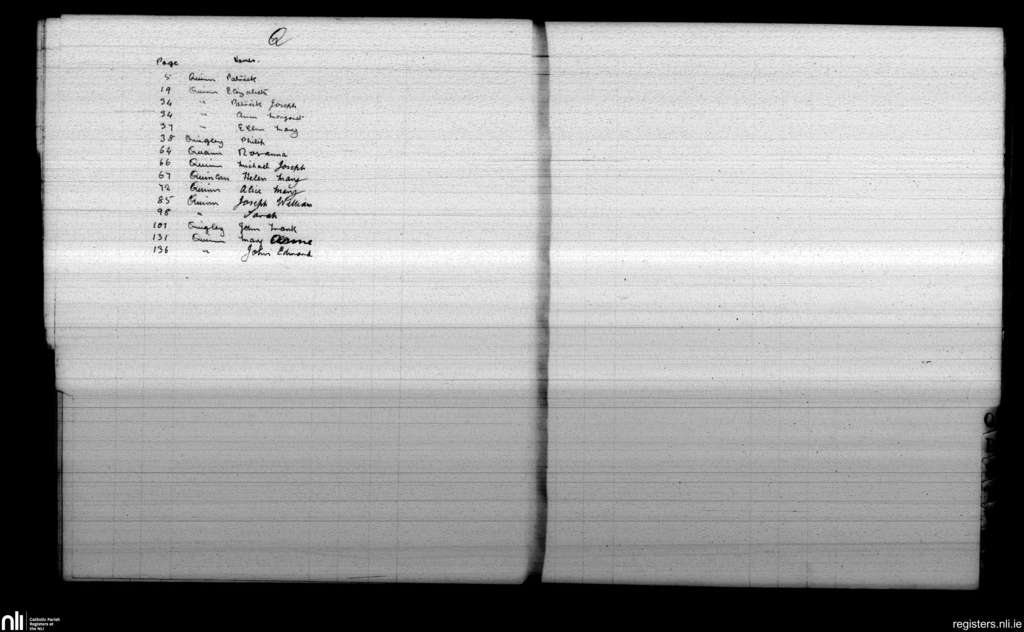 Q
Page Names.
5 Quinn Patrick
19 Quinn Elizabeth
34 " Patrick Joseph
34 " Ann Margaret
37 " Ellen Mary
38 Quigley Philip
64 Quinn Rosanna
66 Quinn Michael Joseph
67 Helen Mary
72 Quinn Alice Mary
85 Quinn Joseph William
98 " Sarah
107 Quigley John
131 Quinn Mary
136 " John Edmond
nli Catholic Parish
Registers at
the NLI
registers.nli.ie